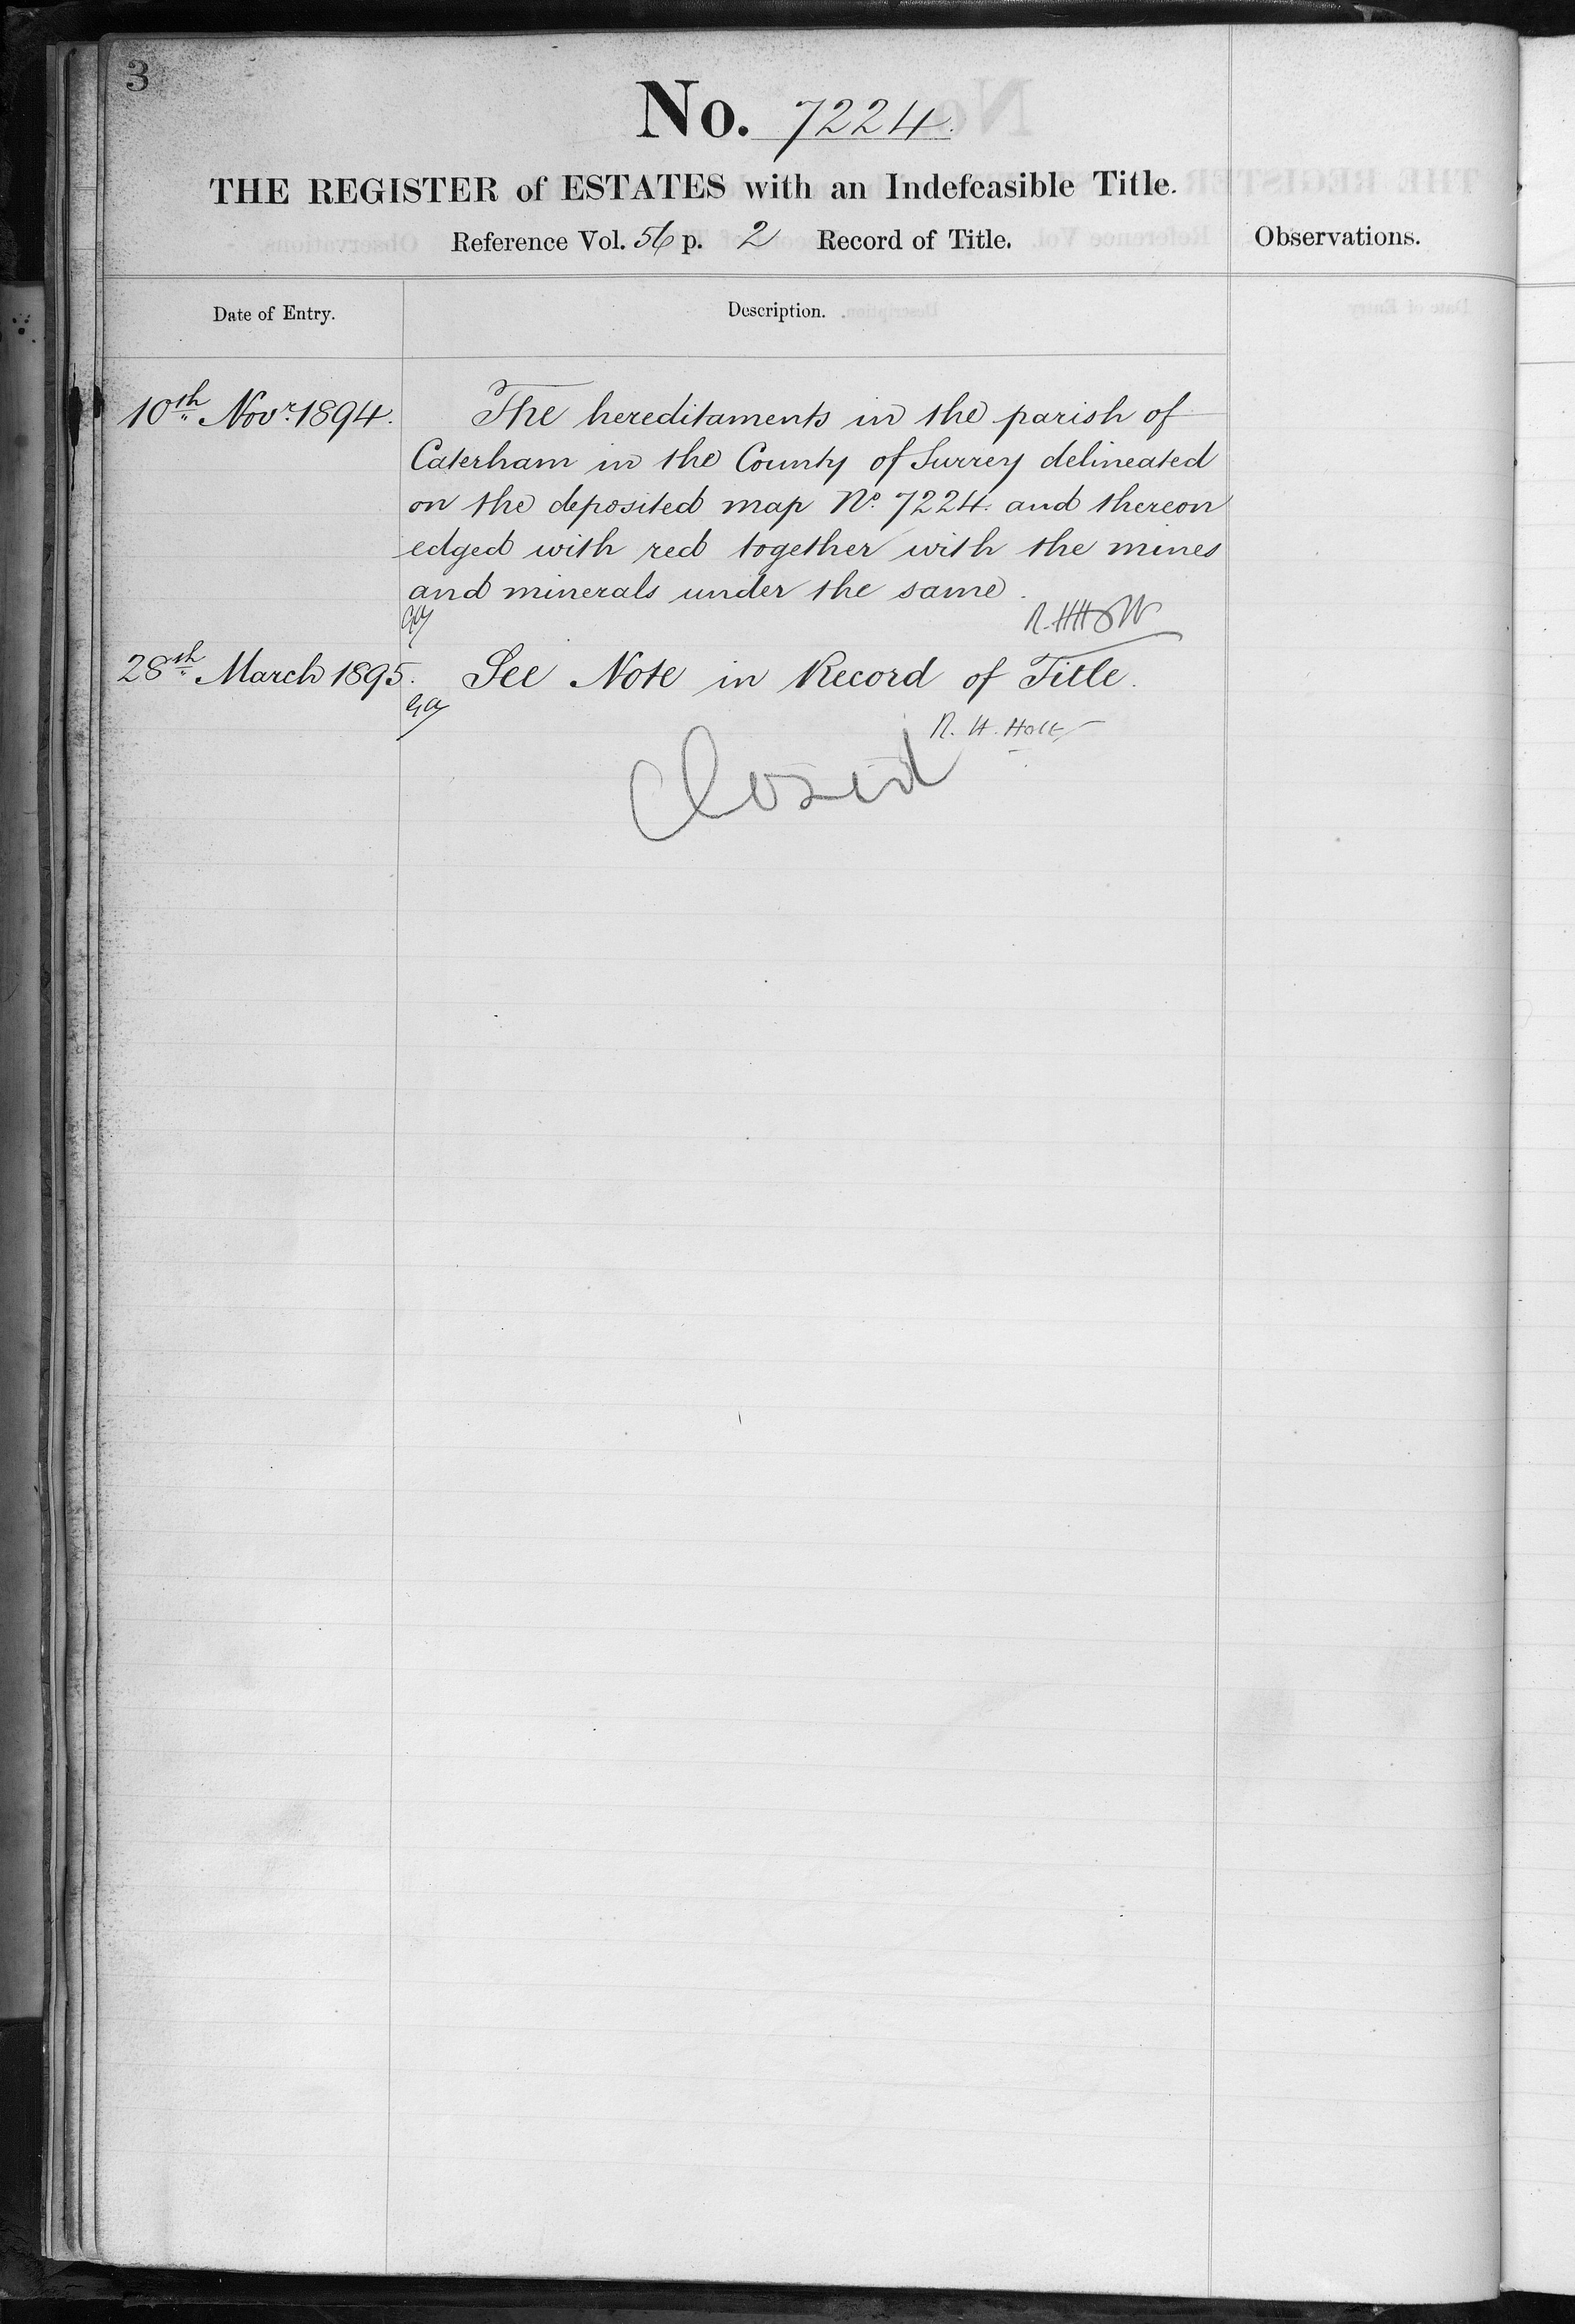 3
No. 7224.
THE REGISTER of ESTATES with an Indefeasible Title.
Reference Vol. 56 p. 2 Record of Title.
Observations.
Date of Entry.
Description.
10th Novr. 1894.
The hereditaments in the parish of
Caterham in the County of Surrey delineated
on the deposited map No. 7224. and thereon
edged with red together with the mines
and minerals under the same.
28th March 1895.
See Note in Record of Title.
R. H. Holt
Closed